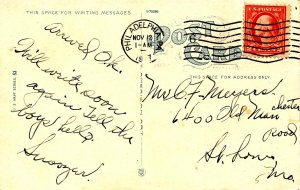 THIS SPACE FOR WRITING MESSAGES.
PHILADELPHIA
NOV 12
1-AM
POST CARD
THIS SPACE FOR ADDRESS ONLY.
Arrived O.K.
Will write soon
again tell the
boys hello
Mrs C. F. Meyers
6400 Old Manchester
Road
St. Louis
Mo.